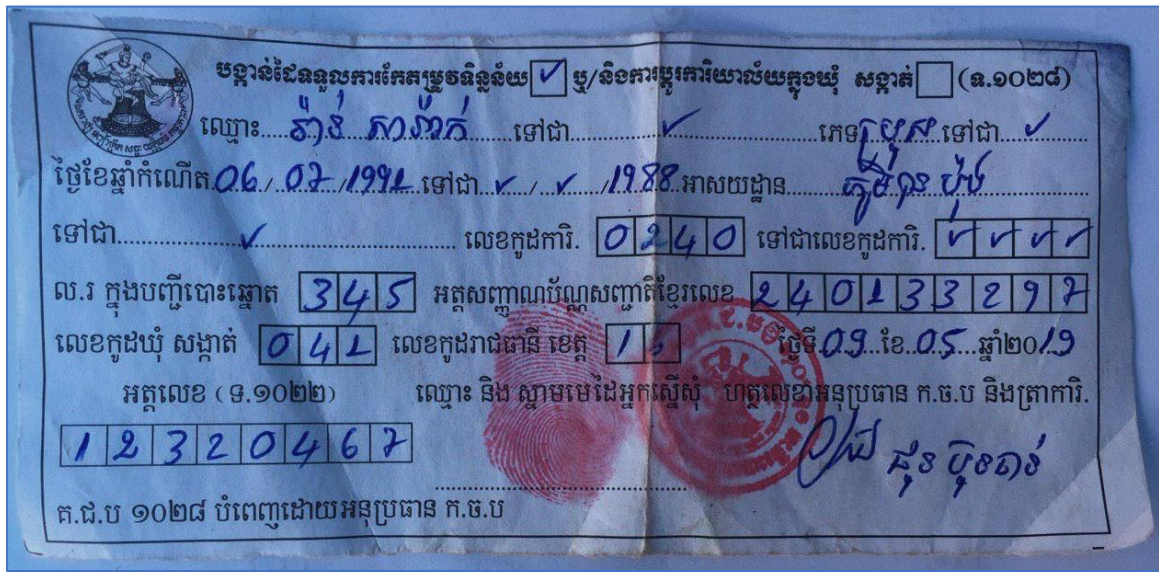 បង្កាន់ដៃទទួលការកែតម្រូវទិន្នន័យ ✓ ឬ/និងការប្តូរការិយាល័យក្នុងឃុំ សង្កាត់ (ទ.១០២៨)
ឈ្មោះ ទៅជា ✓ ភេទ ប្រុស ទៅជា ✓
ថ្ងៃខែឆ្នាំកំណើត 06/07/1991 ទៅជា ✓/✓/1988 អាសយដ្ឋាន ភូមិ
ទៅជា ✓ លេខកូដការិ. 0240 ទៅជាលេខកូដការិ. ✓✓✓✓
ល.រ ក្នុងបញ្ជីបោះឆ្នោត 345 អត្តសញ្ញាណប័ណ្ណសញ្ជាតិខ្មែរលេខ 240133297
លេខកូដឃុំ សង្កាត់ លេខកូដរាជធានី ខេត្ត ថ្ងៃទី 09 ខែ 05 ឆ្នាំ2019
អត្តលេខ (ទ.១០២២) ឈ្មោះ និង ស្នាមមេដៃអ្នកស្នើសុំ ហត្ថលេខាអនុប្រធាន ក.ច.ប និងត្រាការិ.
12320467
គ.ជ.ប ១០២៨ បំពេញដោយអនុប្រធាន ក.ច.ប